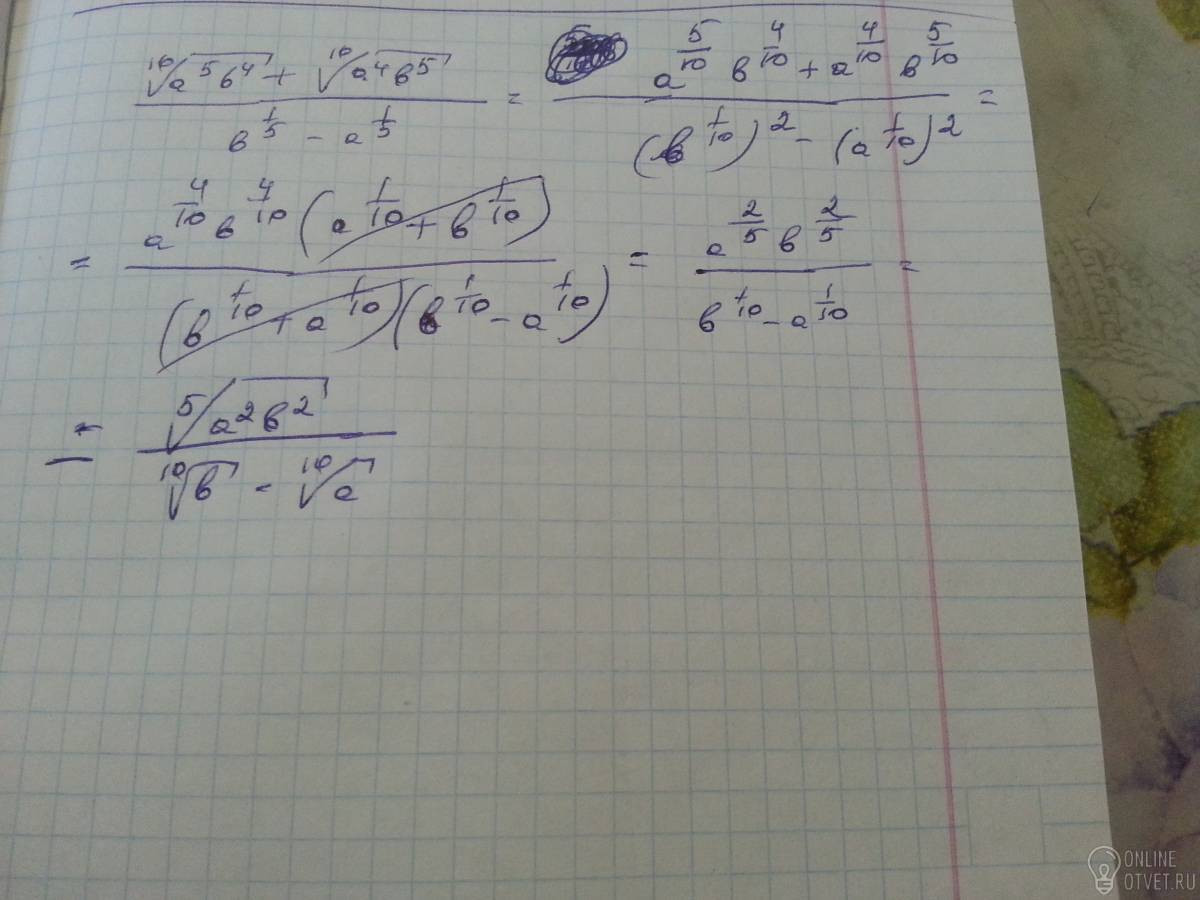 ¹⁰√(a⁵в⁴) + ¹⁰√(a⁴в⁵) / (в^(1/5) − a^(1/5)) = (a^(5/10) в^(4/10) + a^(4/10) в^(5/10)) / ((в^(1/10))² − (a^(1/10))²) =
= a^(4/10) в^(4/10) (a^(1/10) + в^(1/10)) / ((в^(1/10) + a^(1/10))(в^(1/10) − a^(1/10))) = a^(2/5) в^(2/5) / (в^(1/10) − a^(1/10)) =
= ⁵√(a²в²) / (¹⁰√в − ¹⁰√a)
ONLINE
OTVET.RU